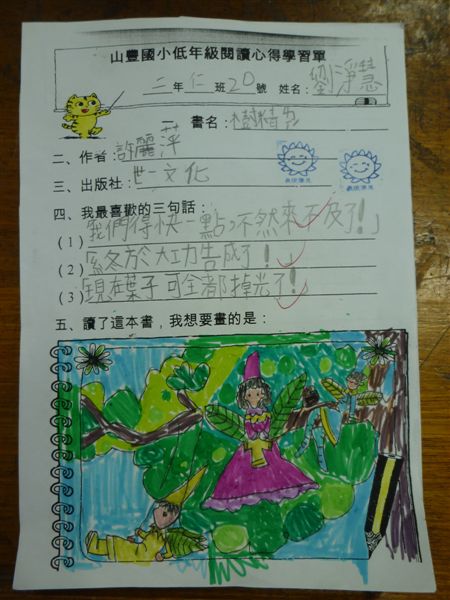 山豐國小低年級閱讀心得學習單
二年仁班20號 姓名：劉淨慧
一、書名：樹精
二、作者：許麗萍
三、出版社：世一文化
四、我最喜歡的三句話：
（1）「我們得快一點，不然來不及了！」
（2）「終於大功告成了！」
（3）「現在葉子可全都掉光了！」
五、讀了這本書，我想要畫的是：